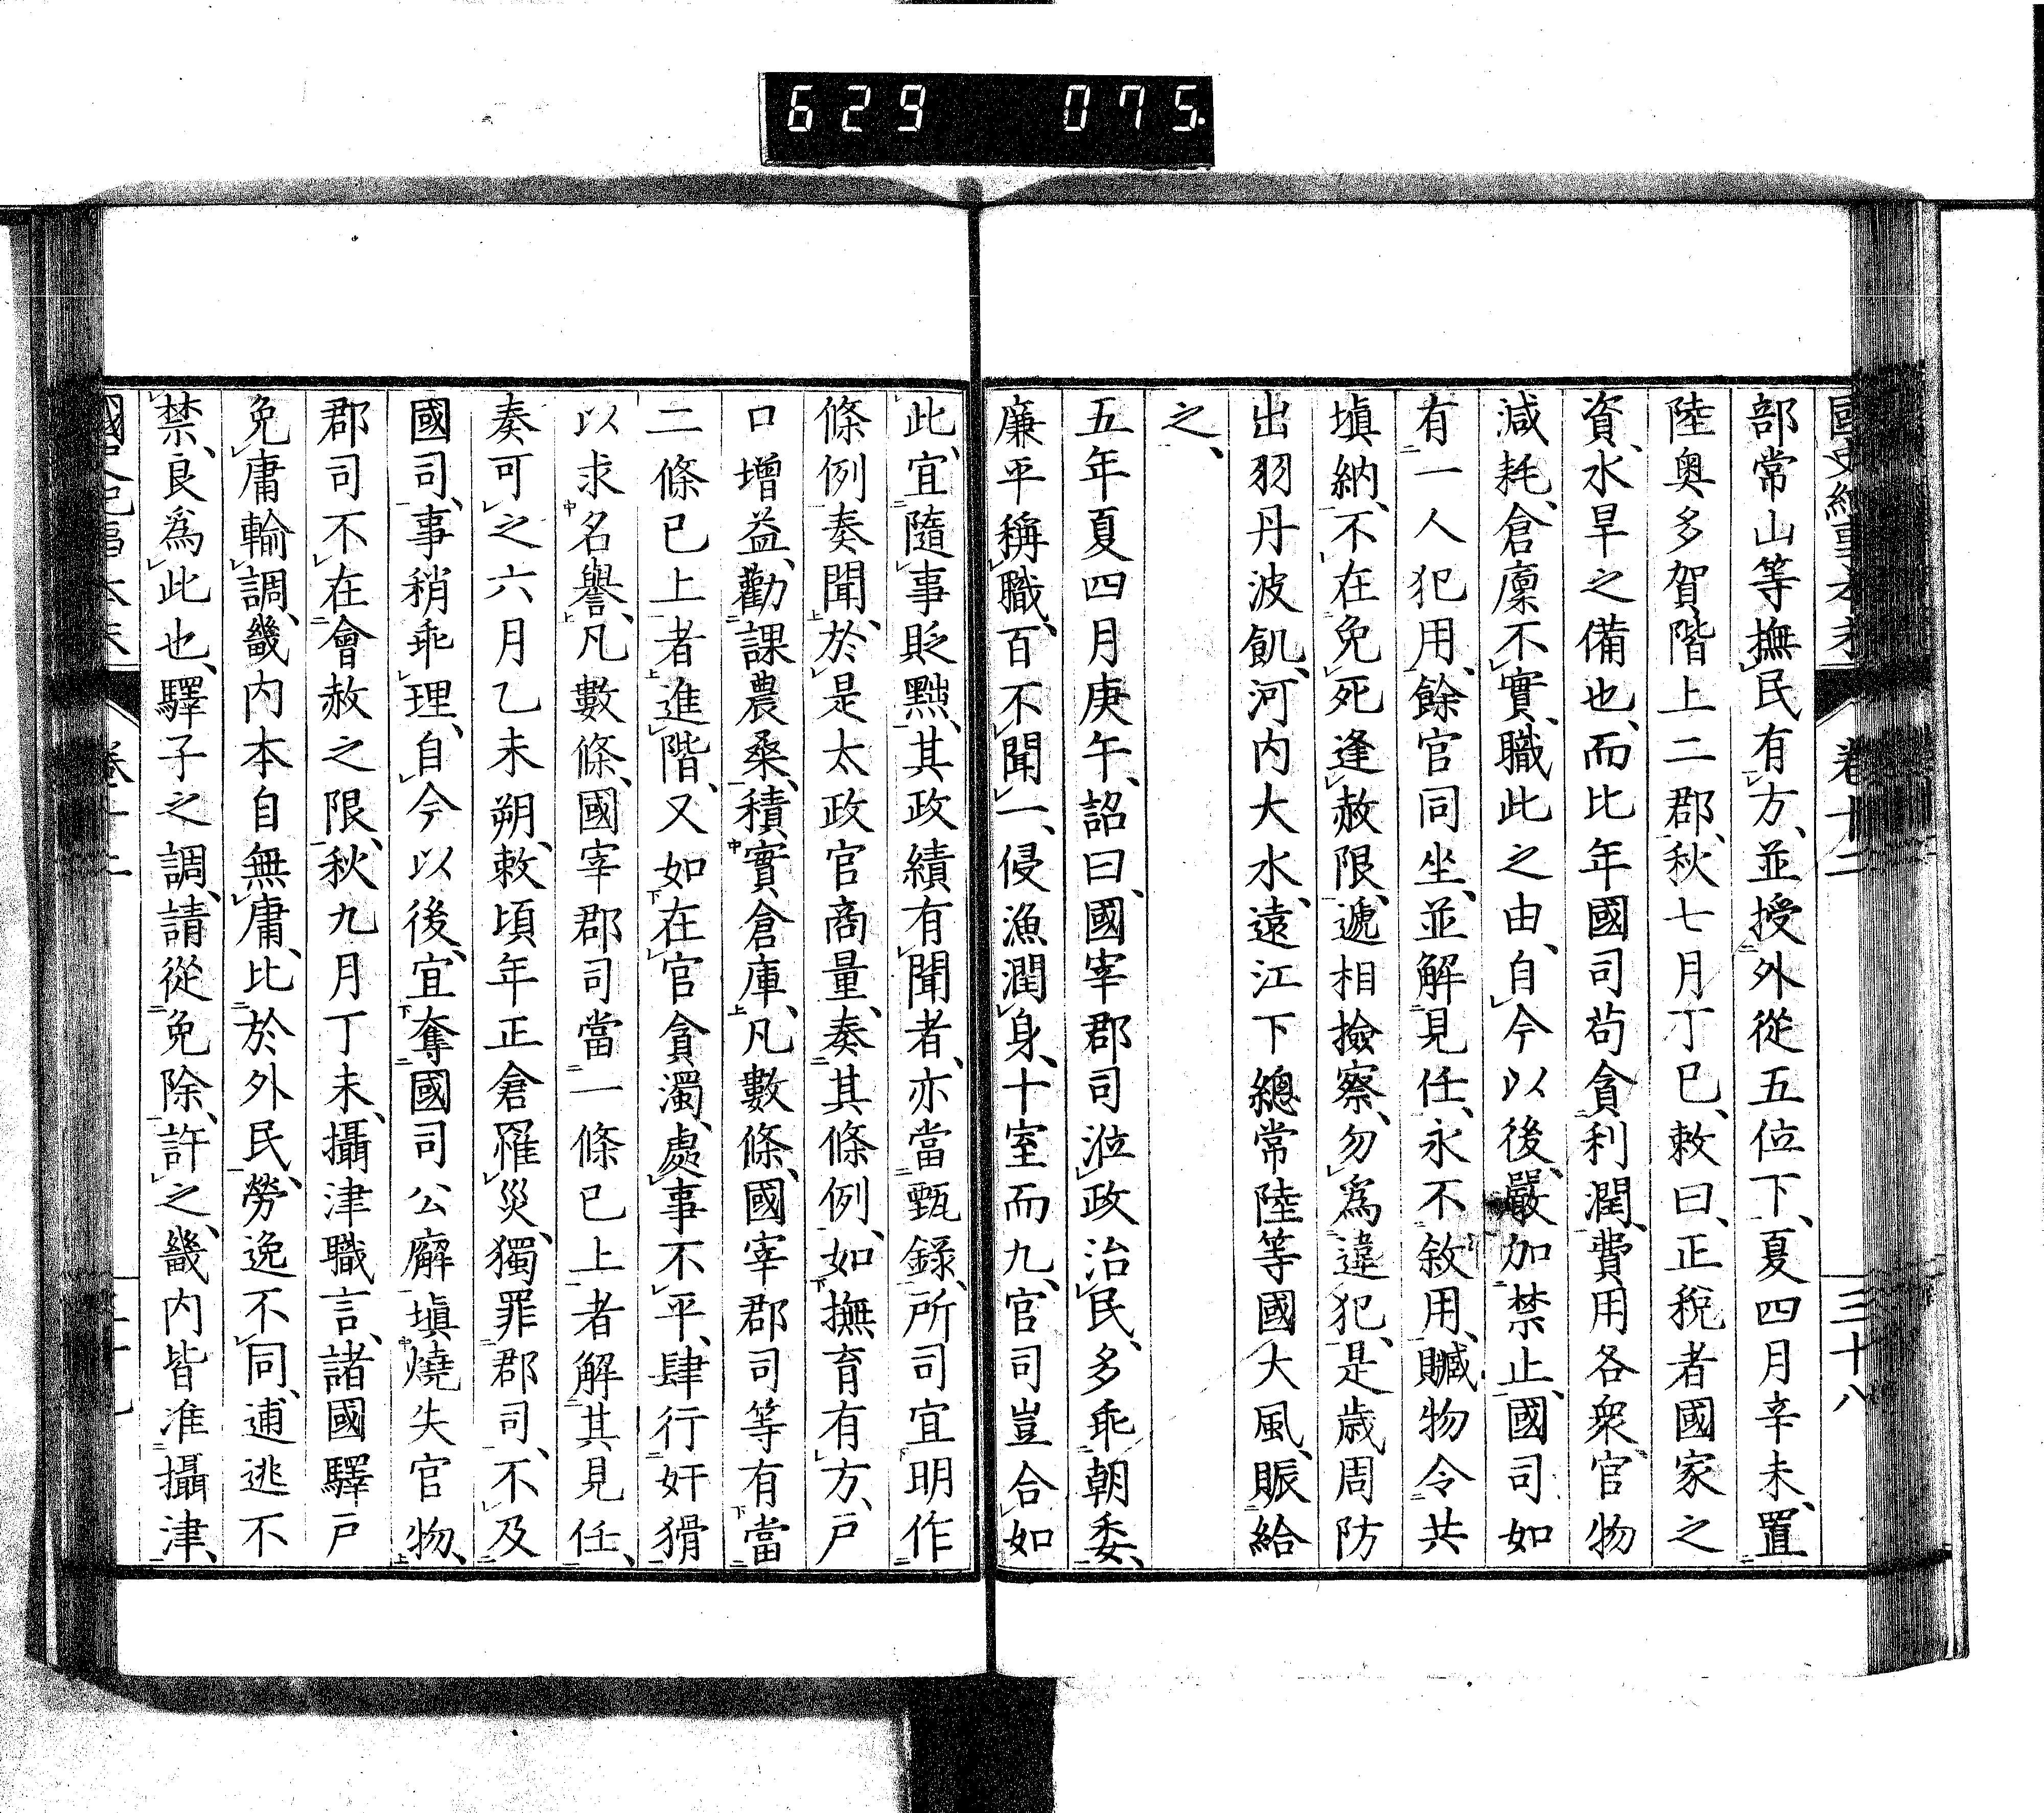 629 075.
國史紀事本末 卷十二 三十八
部常山等撫民有方、並授外從五位下、夏四月辛未、置
陸奥多賀階上二郡、秋七月丁巳、敕曰、正稅者國家之
資、水旱之備也、而比年國司苟貪利潤、費用各衆、官物
減耗、倉廩不實、職此之由、自今以後、嚴加禁止、國司如
有一人犯用、餘官同坐、並解見任、永不敘用、贓物令共
塡納、不在免死逢赦限、遞相撿察、勿爲違犯、是歲周防
出羽丹波飢、河内大水、遠江下總常陸等國大風、賑給
之、
五年夏四月庚午、詔曰、國宰郡司涖政治民、多乖朝委、
廉平稱職、百不聞一、侵漁潤身、十室而九、官司豈合如
此、宜隨事貶黜、其政績有聞者、亦當甄錄、所司宜明作
條例奏聞、於是太政官商量、奏其條例、如撫育有方、戸
口增益、勸課農桑、積實倉庫、凡數條、國宰郡司等有當
二條已上者進階、又如在官貪濁、處事不平、肆行奸猾
以求名譽、凡數條、國宰郡司當一條已上者解其見任、
奏可之六月乙未朔、敕頃年正倉罹災、獨罪郡司、不及
國司、事稍乖理、自今以後、宜奪國司公廨塡燒失官物、
郡司不在會赦之限、秋九月丁未、攝津職言、諸國驛戸
免庸輸調、畿内本自無庸、比於外民、勞逸不同、逋逃不
禁、良爲此也、驛子之調、請從免除、許之、畿内皆准攝津、